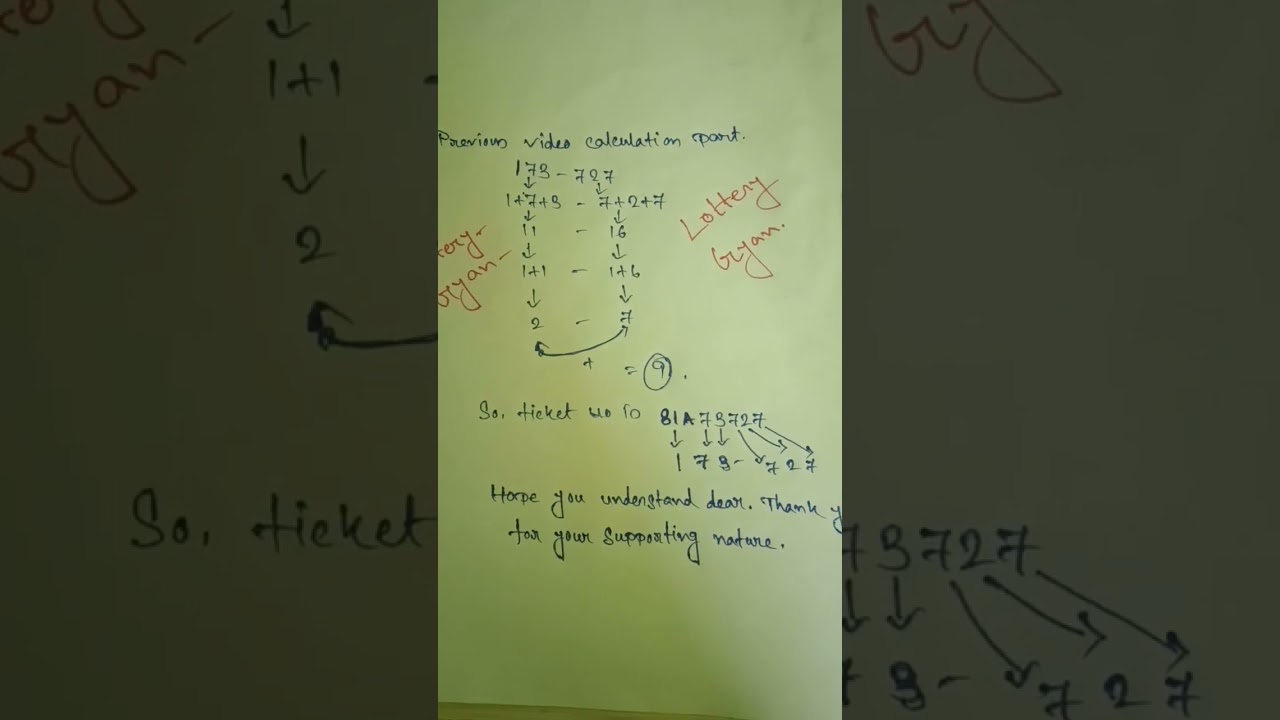 Previous video calculation part.
173 - 727
1+7+3 - 7+2+7
11 - 16
1+1 - 1+6
2 - 7
+ = 9.
Lottery
Gyan.
So, ticket no is 81A 73727
1 7 3 - 7 2 7
Hope you understand dear. Thank y
for your supporting nature.